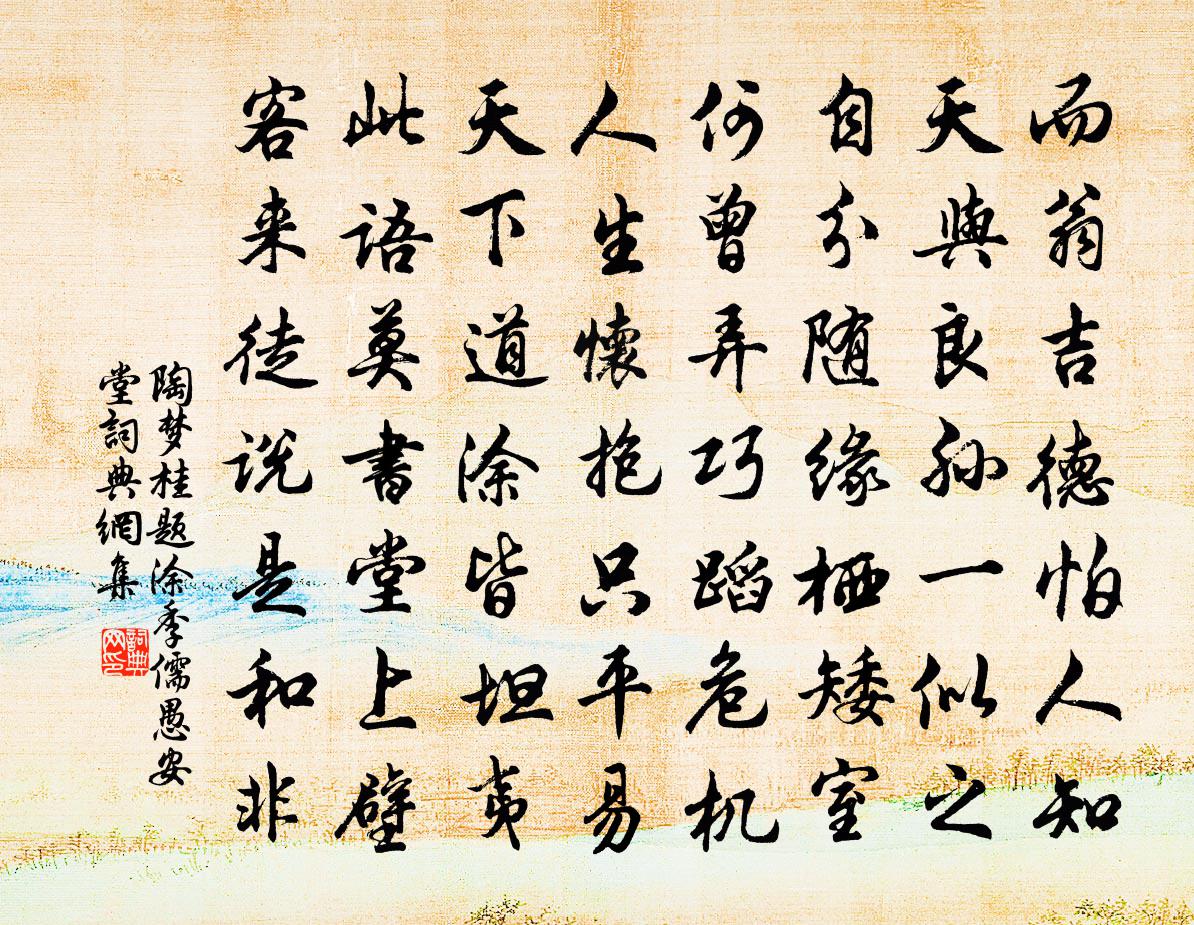 而翁吉德怕人知
天與良孙一似之
自分随缘栖矮室
何曾弄巧蹈危机
人生懷抱只平易
天下道涂皆坦夷
此语莫書堂上壁
客来徒说是和非
陶梦桂题涂季儒愚安
堂詞典網集
詞典网印